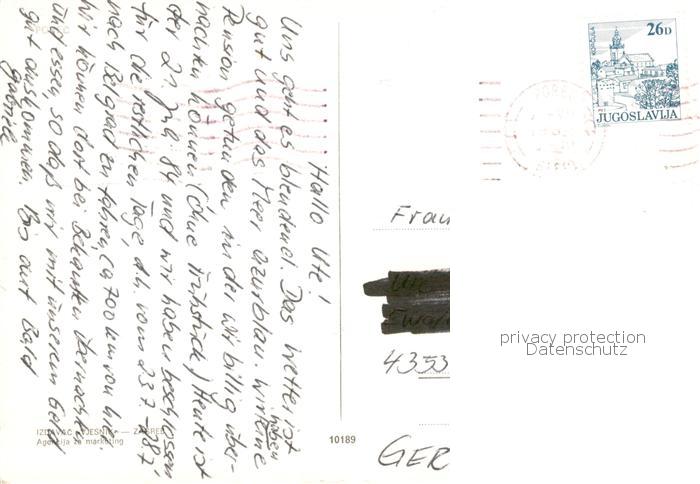 Hallo Ute!
Uns geht es blendend. Das Wetter ist
gut und das Meer azurblau. Wir haben eine
Pension gefunden in der wir billig über-
nachten können (Ohne Frühstück) Heute ist
der 21. Juli 84 und wir haben beschlossen
für die restlichen Tage, d.h. vom 23.7.-28.7.
nach Belgrad zu fahren, ca 700 km von hier.
Wir können dort bei Bekannten übernachten
und essen, so daß wir mit unserem Geld
gut auskommen. Bis dann Bald
Gabriele
IZDAVAČ »VJESNIK« — ZAGREB
Agencija za marketing
10189
26D
KORČULA
PTT
JUGOSLAVIJA
POREČ
Frau
Ute
4353
GER
privacy protection
Datenschutz